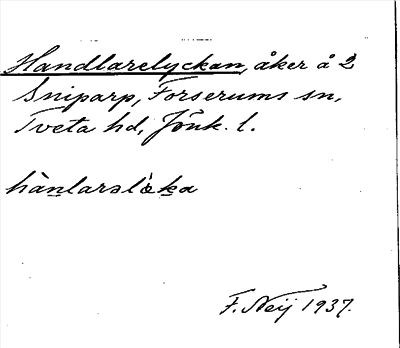 Handlarelyckan, åker å 2
Sniparp, Forserums sn,
Tveta hd, Jönk. l.
hànlarslø̀ka
F. Neij 1937.